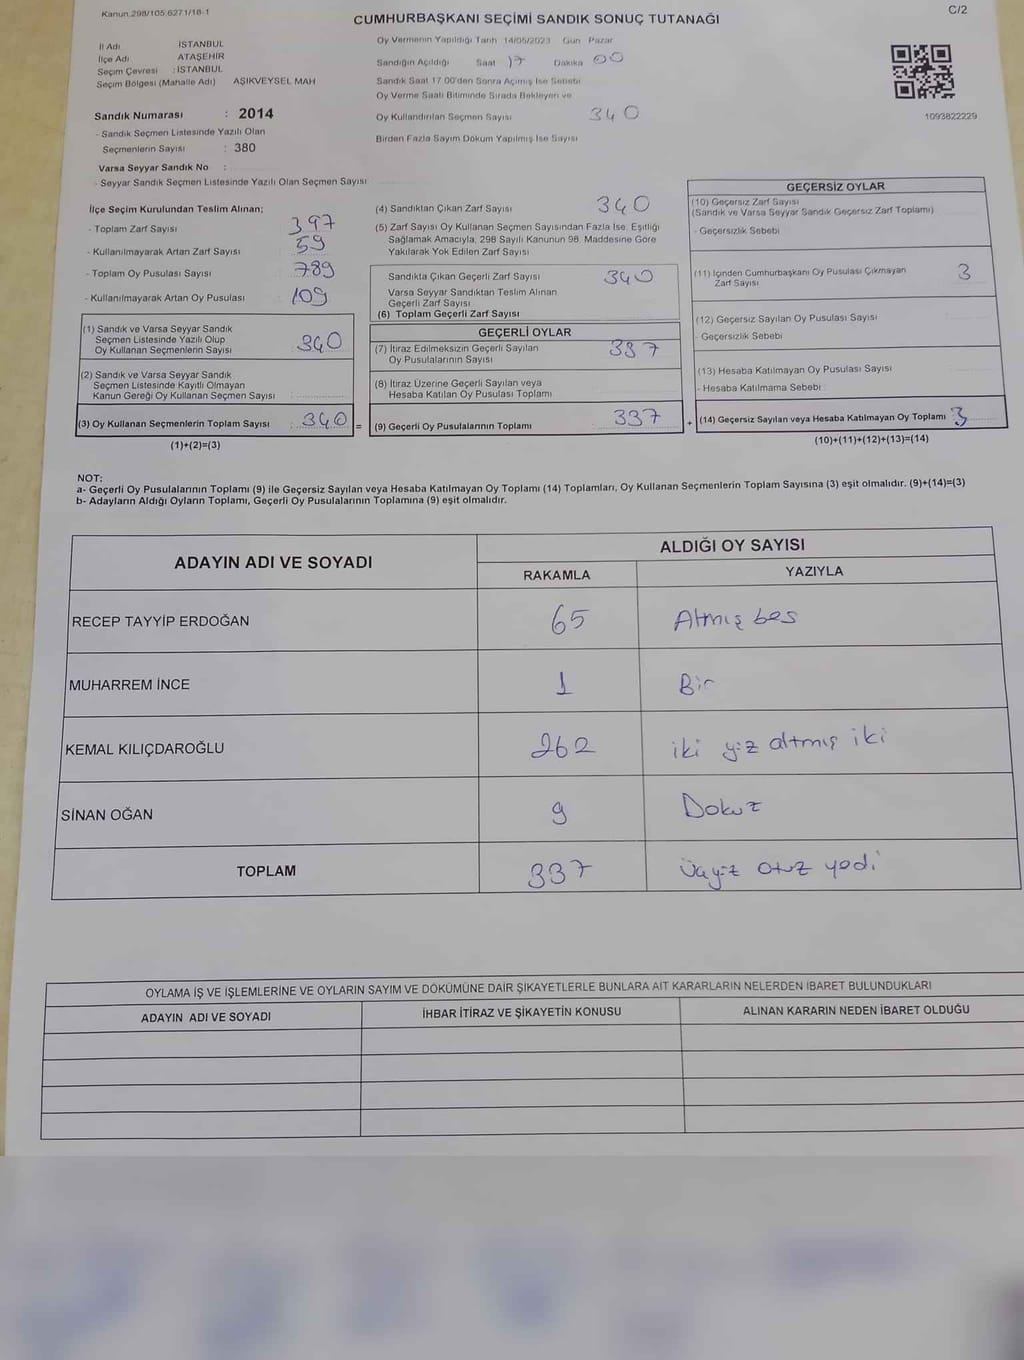 Kanun 298/105 6271/18-1
C/2
CUMHURBAŞKANI SEÇİMİ SANDIK SONUÇ TUTANAĞI
İl Adı : İSTANBUL
İlçe Adı : ATAŞEHİR
Seçim Çevresi : İSTANBUL
Seçim Bölgesi (Mahalle Adı) AŞIKVEYSEL MAH
Sandık Numarası : 2014
- Sandık Seçmen Listesinde Yazılı Olan
Seçmenlerin Sayısı : 380
Varsa Seyyar Sandık No :
- Seyyar Sandık Seçmen Listesinde Yazılı Olan Seçmen Sayısı
Oy Vermenin Yapıldığı Tarih 14/05/2023 Gün Pazar
Sandığın Açıldığı Saat 17 Dakika 00
Sandık Saat 17.00'den Sonra Açılmış İse Sebebi
Oy Verme Saati Bitiminde Sırada Bekleyen ve
Oy Kullandırılan Seçmen Sayısı 340
Birden Fazla Sayım Döküm Yapılmış İse Sayısı
1093822229
İlçe Seçim Kurulundan Teslim Alınan;
- Toplam Zarf Sayısı 397
- Kullanılmayarak Artan Zarf Sayısı 59
- Toplam Oy Pusulası Sayısı 789
- Kullanılmayarak Artan Oy Pusulası 109
(1) Sandık ve Varsa Seyyar Sandık
Seçmen Listesinde Yazılı Olup
Oy Kullanan Seçmenlerin Sayısı 340
(2) Sandık ve Varsa Seyyar Sandık
Seçmen Listesinde Kayıtlı Olmayan
Kanun Gereği Oy Kullanan Seçmen Sayısı :
(3) Oy Kullanan Seçmenlerin Toplam Sayısı : 340 =
(1)+(2)=(3)
(4) Sandıktan Çıkan Zarf Sayısı 340
(5) Zarf Sayısı Oy Kullanan Seçmen Sayısından Fazla İse, Eşitliği
Sağlamak Amacıyla, 298 Sayılı Kanunun 98. Maddesine Göre
Yakılarak Yok Edilen Zarf Sayısı
Sandıkta Çıkan Geçerli Zarf Sayısı 340
Varsa Seyyar Sandıktan Teslim Alınan
Geçerli Zarf Sayısı
(6) Toplam Geçerli Zarf Sayısı
GEÇERLİ OYLAR
(7) İtiraz Edilmeksizin Geçerli Sayılan
Oy Pusulalarının Sayısı 337
(8) İtiraz Üzerine Geçerli Sayılan veya
Hesaba Katılan Oy Pusulası Toplamı
(9) Geçerli Oy Pusulalarının Toplamı 337 +
GEÇERSİZ OYLAR
(10) Geçersiz Zarf Sayısı
(Sandık ve Varsa Seyyar Sandık Geçersiz Zarf Toplamı)
- Geçersizlik Sebebi
(11) İçinden Cumhurbaşkanı Oy Pusulası Çıkmayan
Zarf Sayısı 3
(12) Geçersiz Sayılan Oy Pusulası Sayısı
- Geçersizlik Sebebi
(13) Hesaba Katılmayan Oy Pusulası Sayısı
- Hesaba Katılmama Sebebi :
(14) Geçersiz Sayılan veya Hesaba Katılmayan Oy Toplamı 3
(10)+(11)+(12)+(13)=(14)
NOT:
a- Geçerli Oy Pusulalarının Toplamı (9) ile Geçersiz Sayılan veya Hesaba Katılmayan Oy Toplamı (14) Toplamları, Oy Kullanan Seçmenlerin Toplam Sayısına (3) eşit olmalıdır. (9)+(14)=(3)
b- Adayların Aldığı Oyların Toplamı, Geçerli Oy Pusulalarının Toplamına (9) eşit olmalıdır.
ADAYIN ADI VE SOYADI
ALDIĞI OY SAYISI
RAKAMLA YAZIYLA
RECEP TAYYİP ERDOĞAN 65 Altmış bes
MUHARREM İNCE 1 Bir
KEMAL KILIÇDAROĞLU 262 iki yüz altmış iki
SİNAN OĞAN 9 Dokuz
TOPLAM 337 Üçyüz otuz yedi
OYLAMA İŞ VE İŞLEMLERİNE VE OYLARIN SAYIM VE DÖKÜMÜNE DAİR ŞİKAYETLERLE BUNLARA AİT KARARLARIN NELERDEN İBARET BULUNDUKLARI
ADAYIN ADI VE SOYADI İHBAR İTİRAZ VE ŞİKAYETİN KONUSU ALINAN KARARIN NEDEN İBARET OLDUĞU